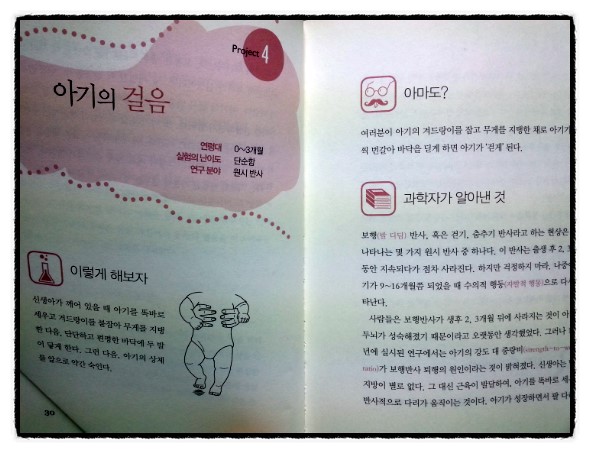 Project 4
아기의 걸음
연령대 0~3개월
실험의 난이도 단순함
연구 분야 원시 반사
이렇게 해보자
신생아가 깨어 있을 때 아기를 똑바로
세우고 겨드랑이를 붙잡아 무게를 지탱
한 다음, 단단하고 편평한 바닥에 두 발
이 닿게 한다. 그런 다음, 아기의 상체
를 앞으로 약간 숙인다.
30
아마도?
여러분이 아기의 겨드랑이를 잡고 무게를 지탱한 채로 아기가
씩 번갈아 바닥을 딛게 하면 아기가 '걷게' 된다.
과학자가 알아낸 것
보행(발 디딤) 반사, 혹은 걷기, 춤추기 반사라고 하는 현상은
나타나는 몇 가지 원시 반사 중 하나다. 이 반사는 출생 후 2,
동안 지속되다가 점차 사라진다. 하지만 걱정하지 마라. 나중에
기가 9~16개월쯤 되었을 때 수의적 행동(자발적 행동)으로 다시
타난다.
사람들은 보행반사가 생후 2, 3개월 뒤에 사라지는 것이 아
두뇌가 성숙해졌기 때문이라고 오랫동안 생각했었다. 그러나
년에 실시된 연구에서는 아기의 강도 대 중량비(strength-to-
ratio)가 보행반사 퇴행의 원인이라는 것이 밝혀졌다. 신생아는
지방이 별로 없다. 그 대신 근육이 발달하여, 아기를 똑바로 세
반사적으로 다리가 움직이는 것이다. 아기가 성장하면서 팔 다